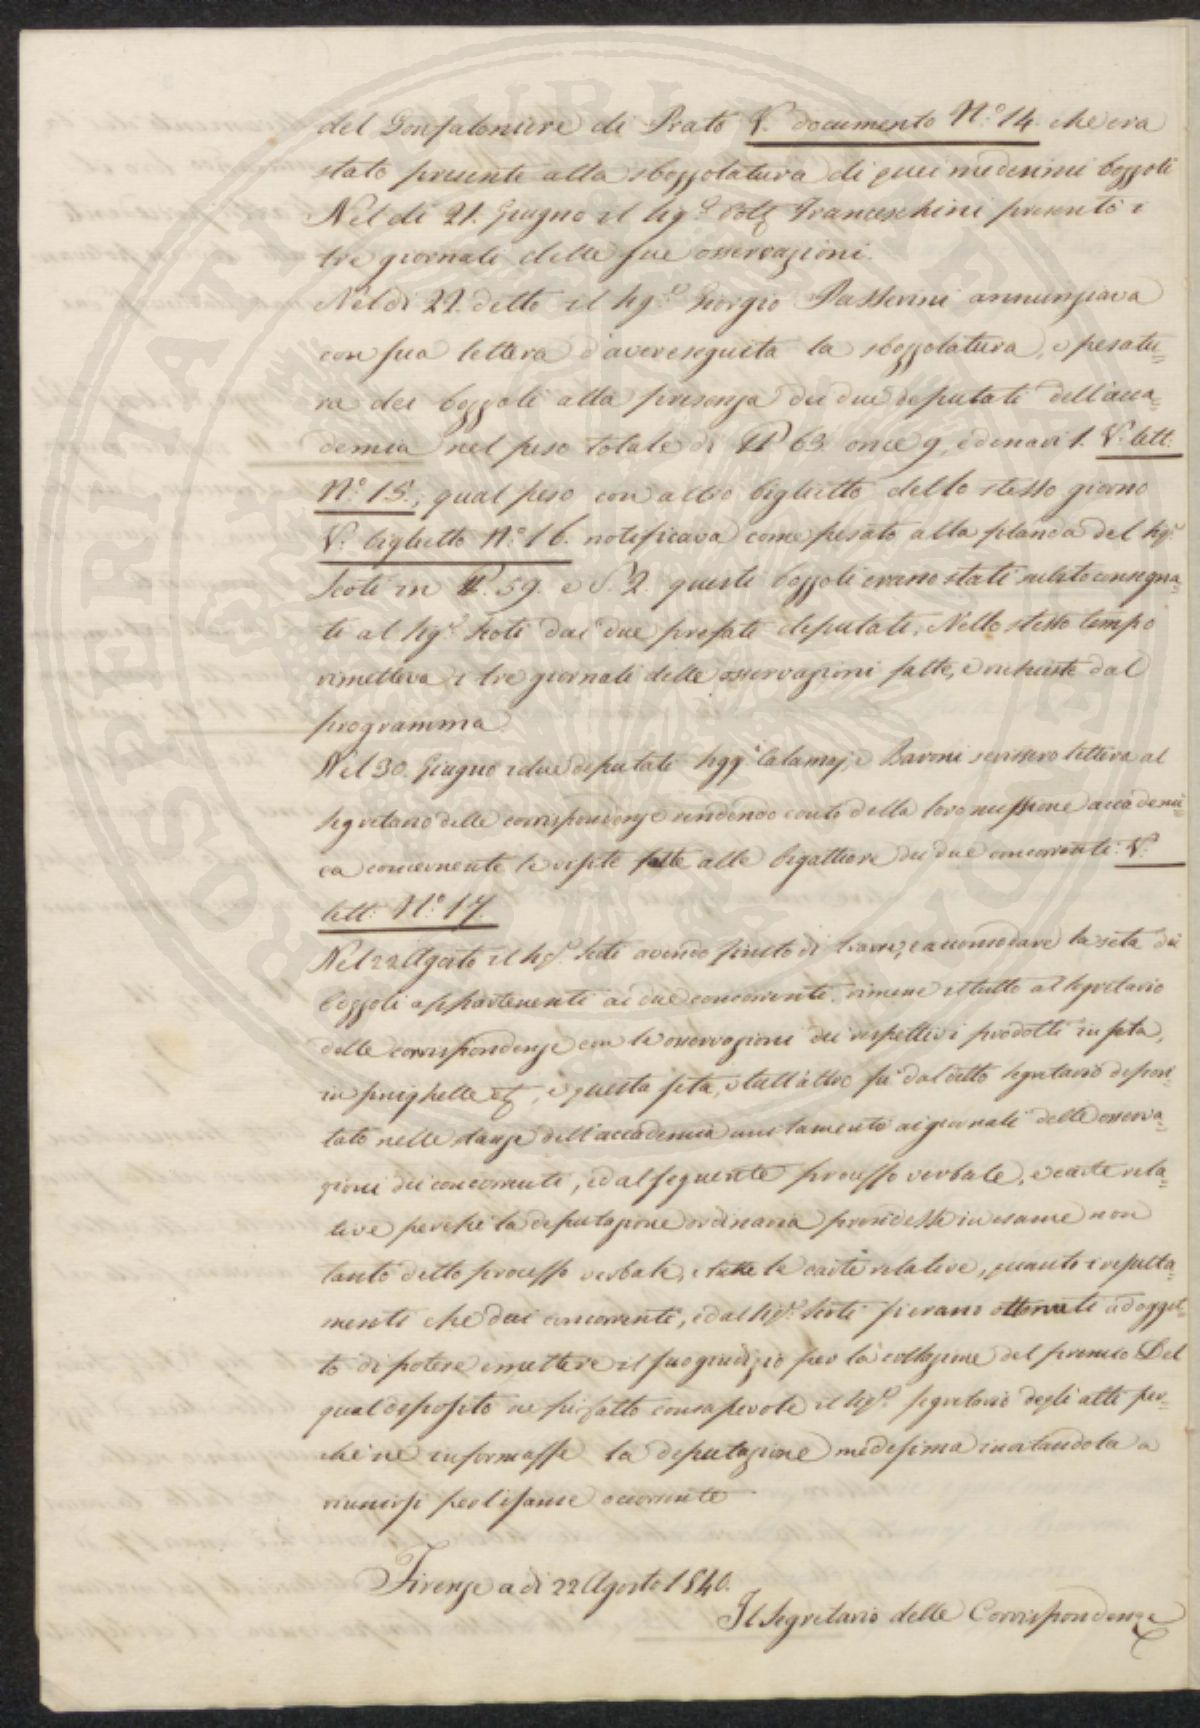 del Gonfaloniere di Prato V. documento N.° 14. che era
stato presente alla sbozzolatura di quei medesimi bozzoli
Nel dì 21. Giugno il Sig.r Dott. Franceschini presentò i
tre giornali delle sue osservazioni.
Nel dì 22. detto il Sig.r Giorgio Passerini annunziava
con sua lettera d'aver eseguita la sbozzolatura, e pesatu=
ra dei bozzoli alla presenza dei due deputati dell'acca=
demia nel peso totale di ℔ 63. once 9, e denari 1. V. lett.
N.° 15., qual peso con altro biglietto dello stesso giorno
V. biglietto N.° 16. notificava come pesato alla planca del Sig.r
Scoti in ℔. 59. e 2. questi bozzoli erano stati subito consegna=
ti al Sig.r Scoti dai due prefati deputati. Nello stesso tempo
rimetteva i tre giornali delle osservazioni fatte, e richieste dal
programma.
Nel 30. Giugno i due deputati Sigg.i Calamaj, e Baroni scrissero lettera al
Segretario delle corrispondenze rendendo conto della loro missione accademi=
ca concernente le visite fatte alle bigattiere dei due concorrenti: V.
lett. N.° 17.
Nel 22 Agosto il Sig.r Scoti avendo finito di trarre, e accomodare la seta dei
bozzoli appartenenti ai due concorrenti, rimesse il tutto al Segretario
delle corrispondenze con le osservazioni dei respettivi prodotti in seta,
in sinighella ec, e questa seta, e tutt'altro fu dal detto Segretario deposi=
tato nelle stanze dell'accademia unitamente ai giornali delle osserva=
zioni dei concorrenti, ed al seguente processo verbale, e carte rela=
tive perché la deputazione ordinaria prendesse in esame non
tanto detto processo verbale, e tutte le carte relative, quanto i resulta=
menti che dai concorrenti, ed al Sig.r Scoti si erano ottenuti ad ogget=
to di potere emettere il suo giudizio per la collazione del premio. Del
qual deposito ne fu fatto consapevole il Sig.r Segretario degli atti per=
ché ne informasse la deputazione medesima invitandola a
riunirsi per l'esame occorrente
Firenze a dì 22 Agosto 1840.
Il Segretario delle Corrispondenze